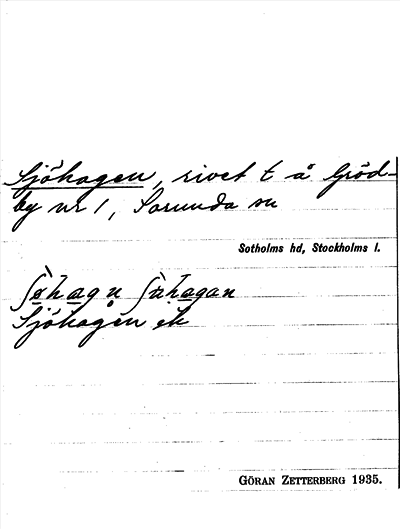 Sjöhagen, rivet t å Gröd-
by nr 1, Sorunda sn
Sotholms hd, Stockholms l.
Sjöhagen ek
GÖRAN ZETTERBERG 1935.